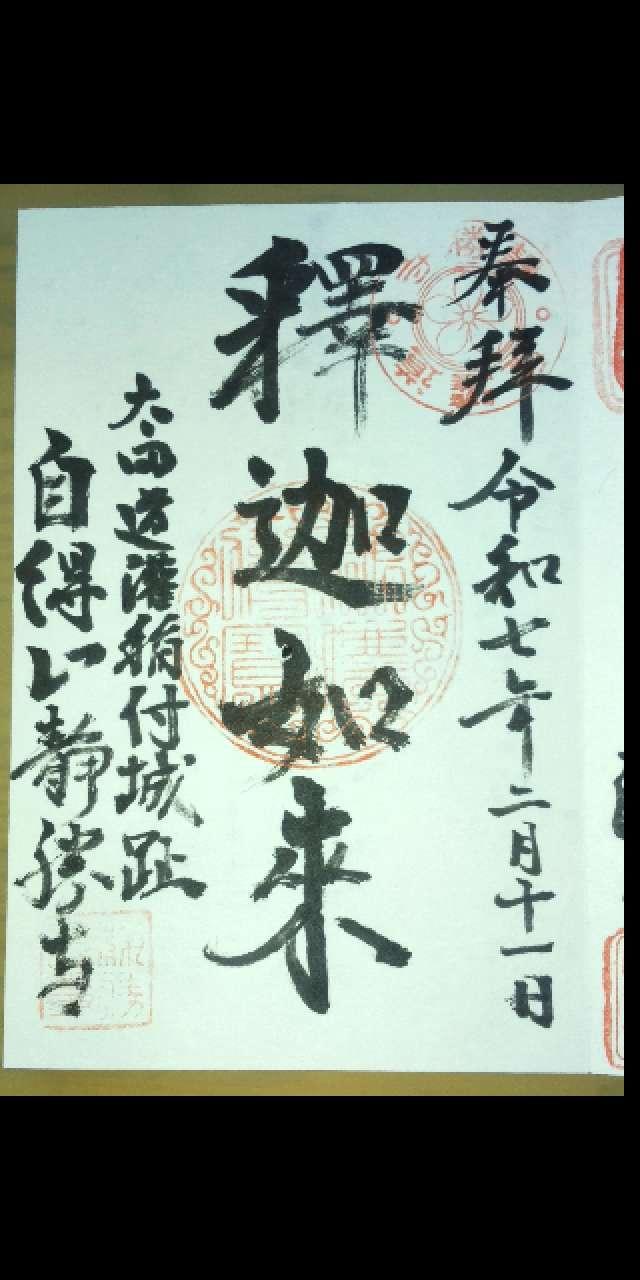 奉拝 令和七年二月十一日
釋迦如来
太田道灌稲付城趾
自得山靜勝寺